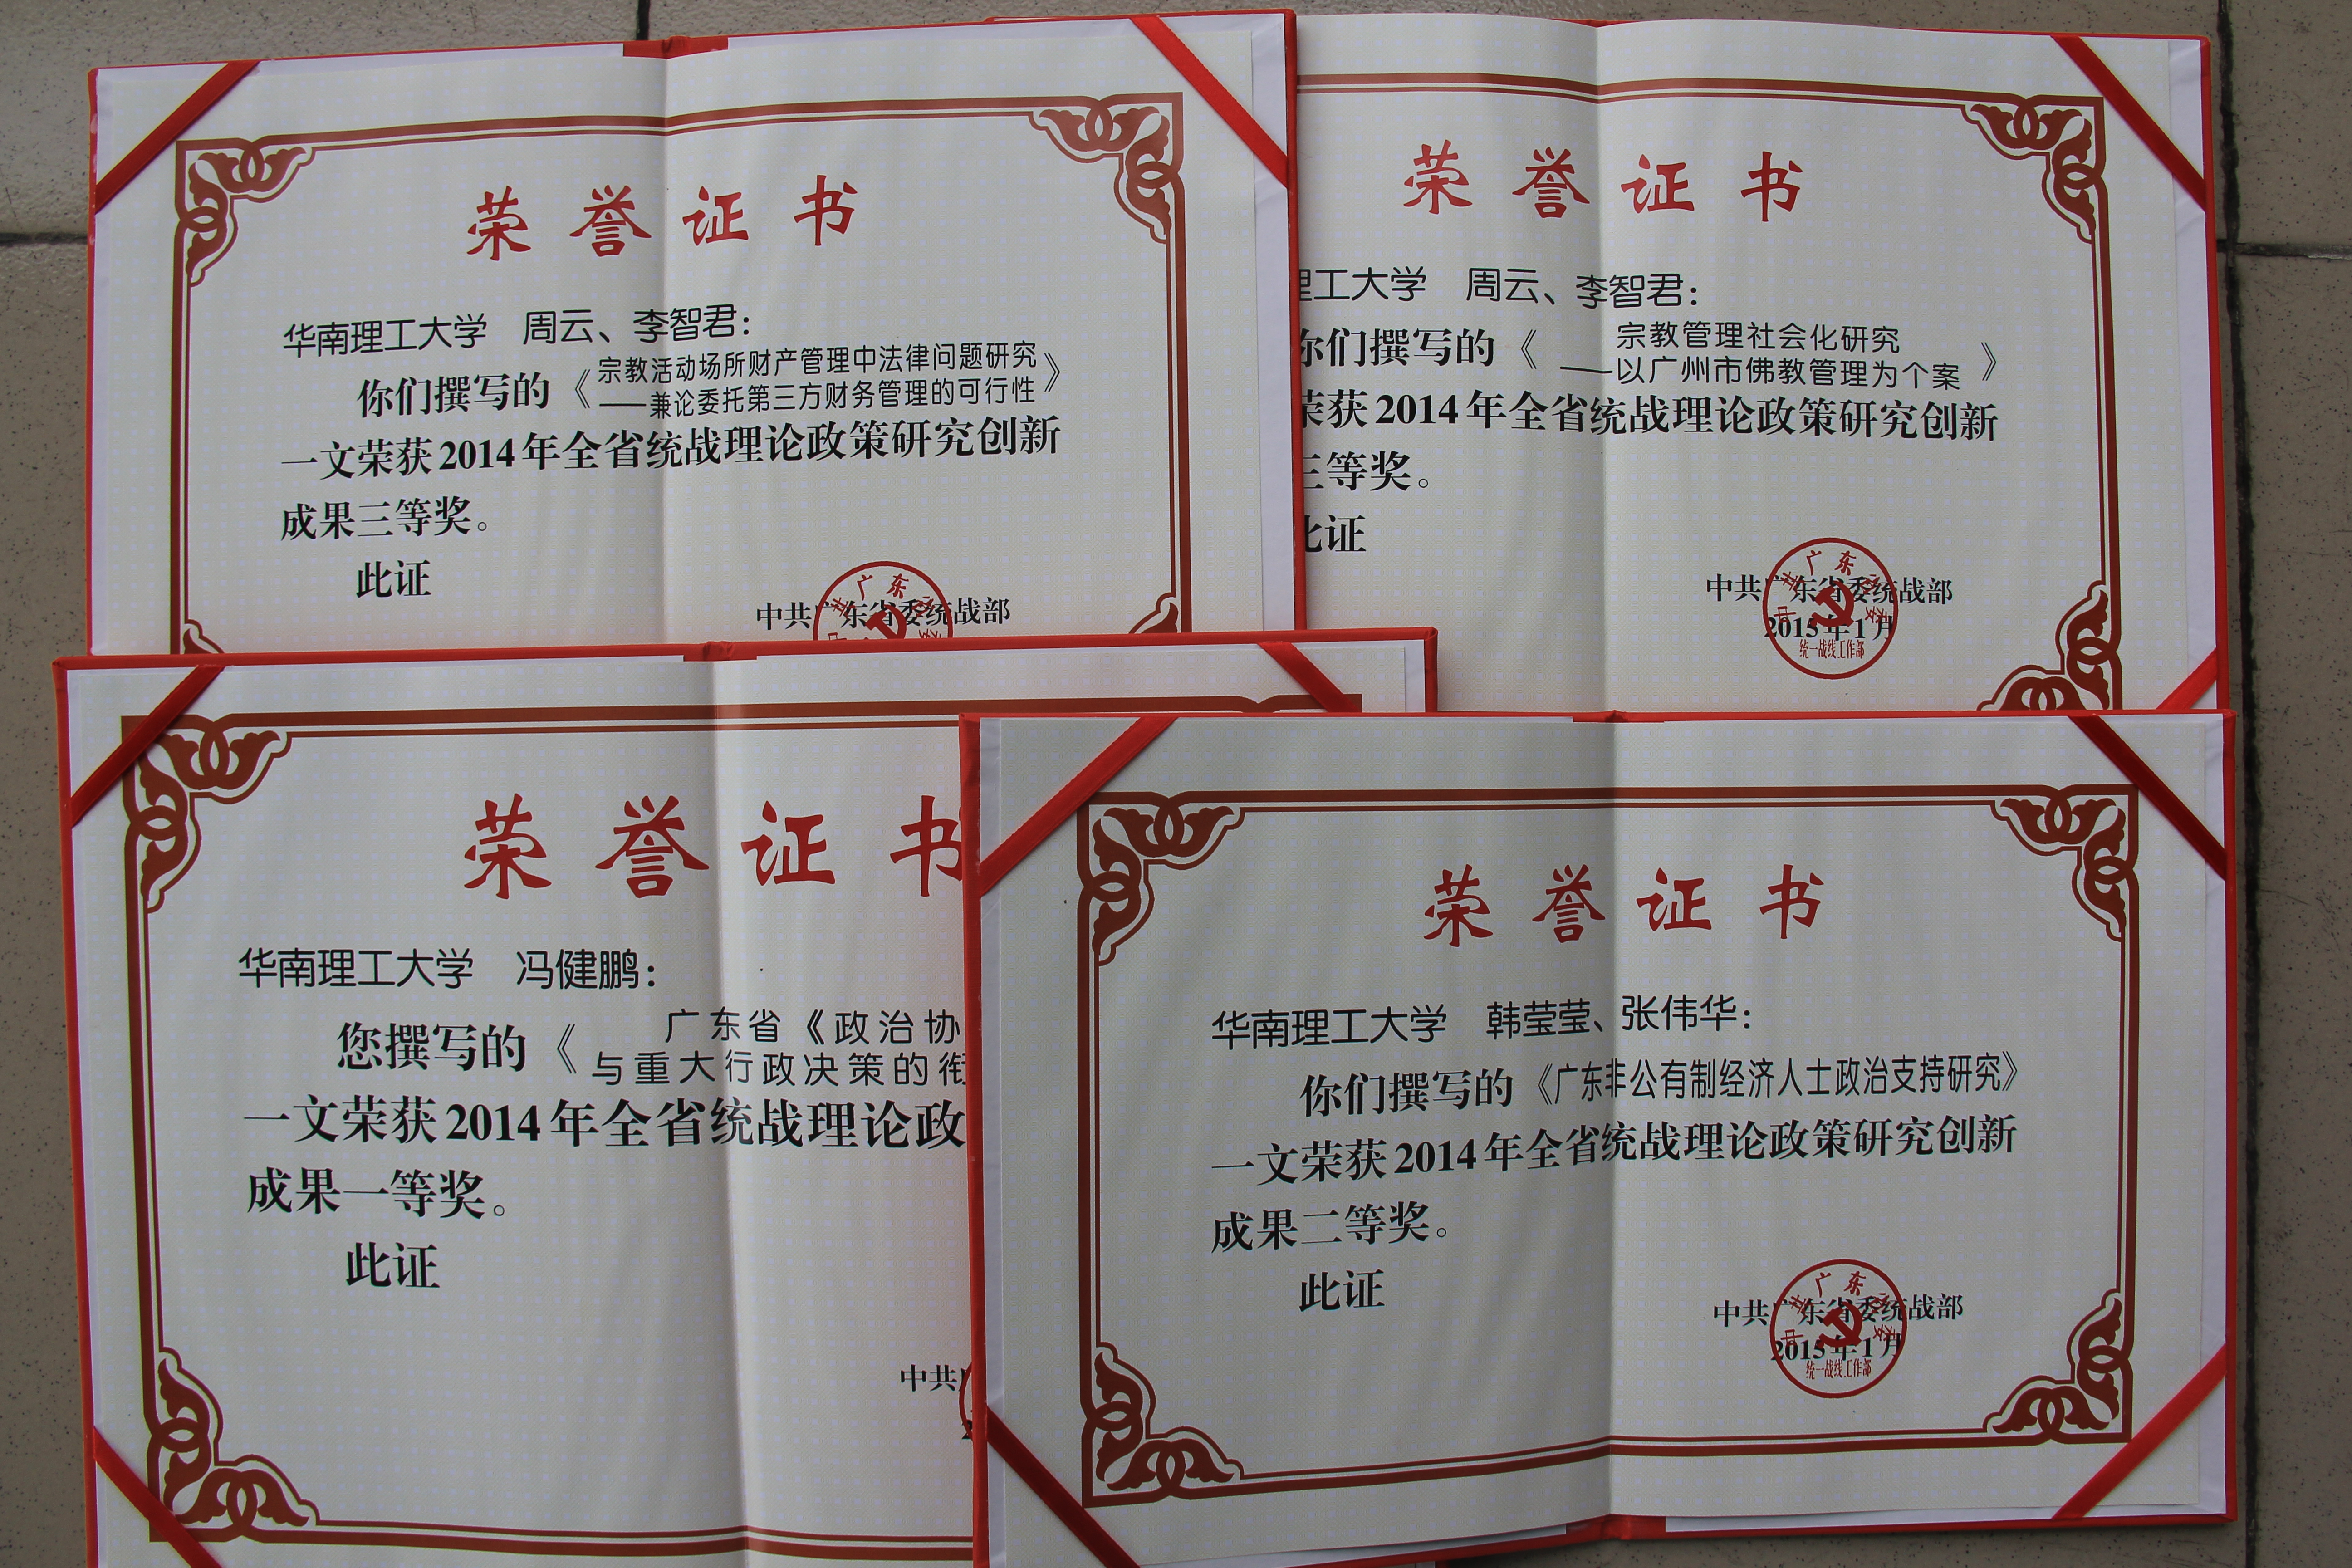 荣誉证书
华南理工大学 周云、李智君：
你们撰写的《宗教活动场所财产管理中法律问题研究
——兼论委托第三方财务管理的可行性》
一文荣获2014年全省统战理论政策研究创新
成果三等奖。
此证
中共广东省委统战部
荣誉证书
理工大学 周云、李智君：
你们撰写的《宗教管理社会化研究
——以广州市佛教管理为个案》
荣获2014年全省统战理论政策研究创新
三等奖。
此证
中共广东省委统战部
2015年1月
统一战线工作部
荣誉证书
华南理工大学 冯健鹏：
您撰写的《广东省《政治协
与重大行政决策的衔
一文荣获2014年全省统战理论政
成果一等奖。
此证
中共
荣誉证书
华南理工大学 韩莹莹、张伟华：
你们撰写的《广东非公有制经济人士政治支持研究》
一文荣获2014年全省统战理论政策研究创新
成果二等奖。
此证
中共广东省委统战部
2015年1月
统一战线工作部